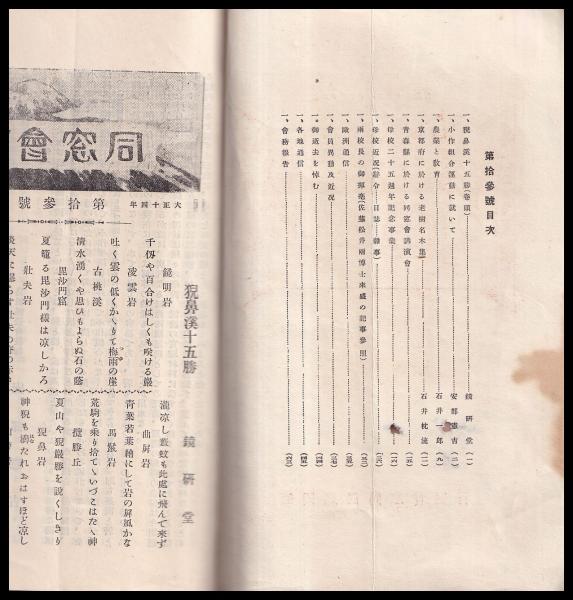 第拾參號目次
一、猊鼻溪十五勝(卷頭)……鏡硏堂…(一)
一、小作組合運動に就いて……安部憲吉…(二)
一、農業と敎育……石井一郎…(九)
一、京都府に於ける老樹名木集……石井枕流…(二)
一、靑森縣に於ける同窓會講演會
一、母校二十五週年記念事業
一、母校近況(辭令―日誌―雜事)
一、兩校長の御揮毫(佐藤松井兩博士來盛の記事參照)
一、歐洲通信
一、會員異動及近況
一、御逝去を悼む
一、各地通信
一、會務報告
同窓會
大正十四年 第拾參號
猊鼻溪十五勝
鏡硏堂
鏡明岩
千仭や百合けはしくも咲ける巖
凌雲岩
吐く雲の低くかゝりて梅雨の崖
古桃溪
淸水湧くや思ひもよらぬ石の蔭
毘沙門窟
夏籠る毘沙門樣は凉しかろ
壯夫岩
瀧凉し藪蚊も此處に飛んで來ず
曲屛岩
靑葉若葉繪にして岩の屛風かな
馬鬣岩
荒駒を乘り捨てゝいづこはたゝ神
攬勝丘
夏山や猊巖勝を說くしきり
猊鼻岩
神猊も濡たれおはすほど凉し